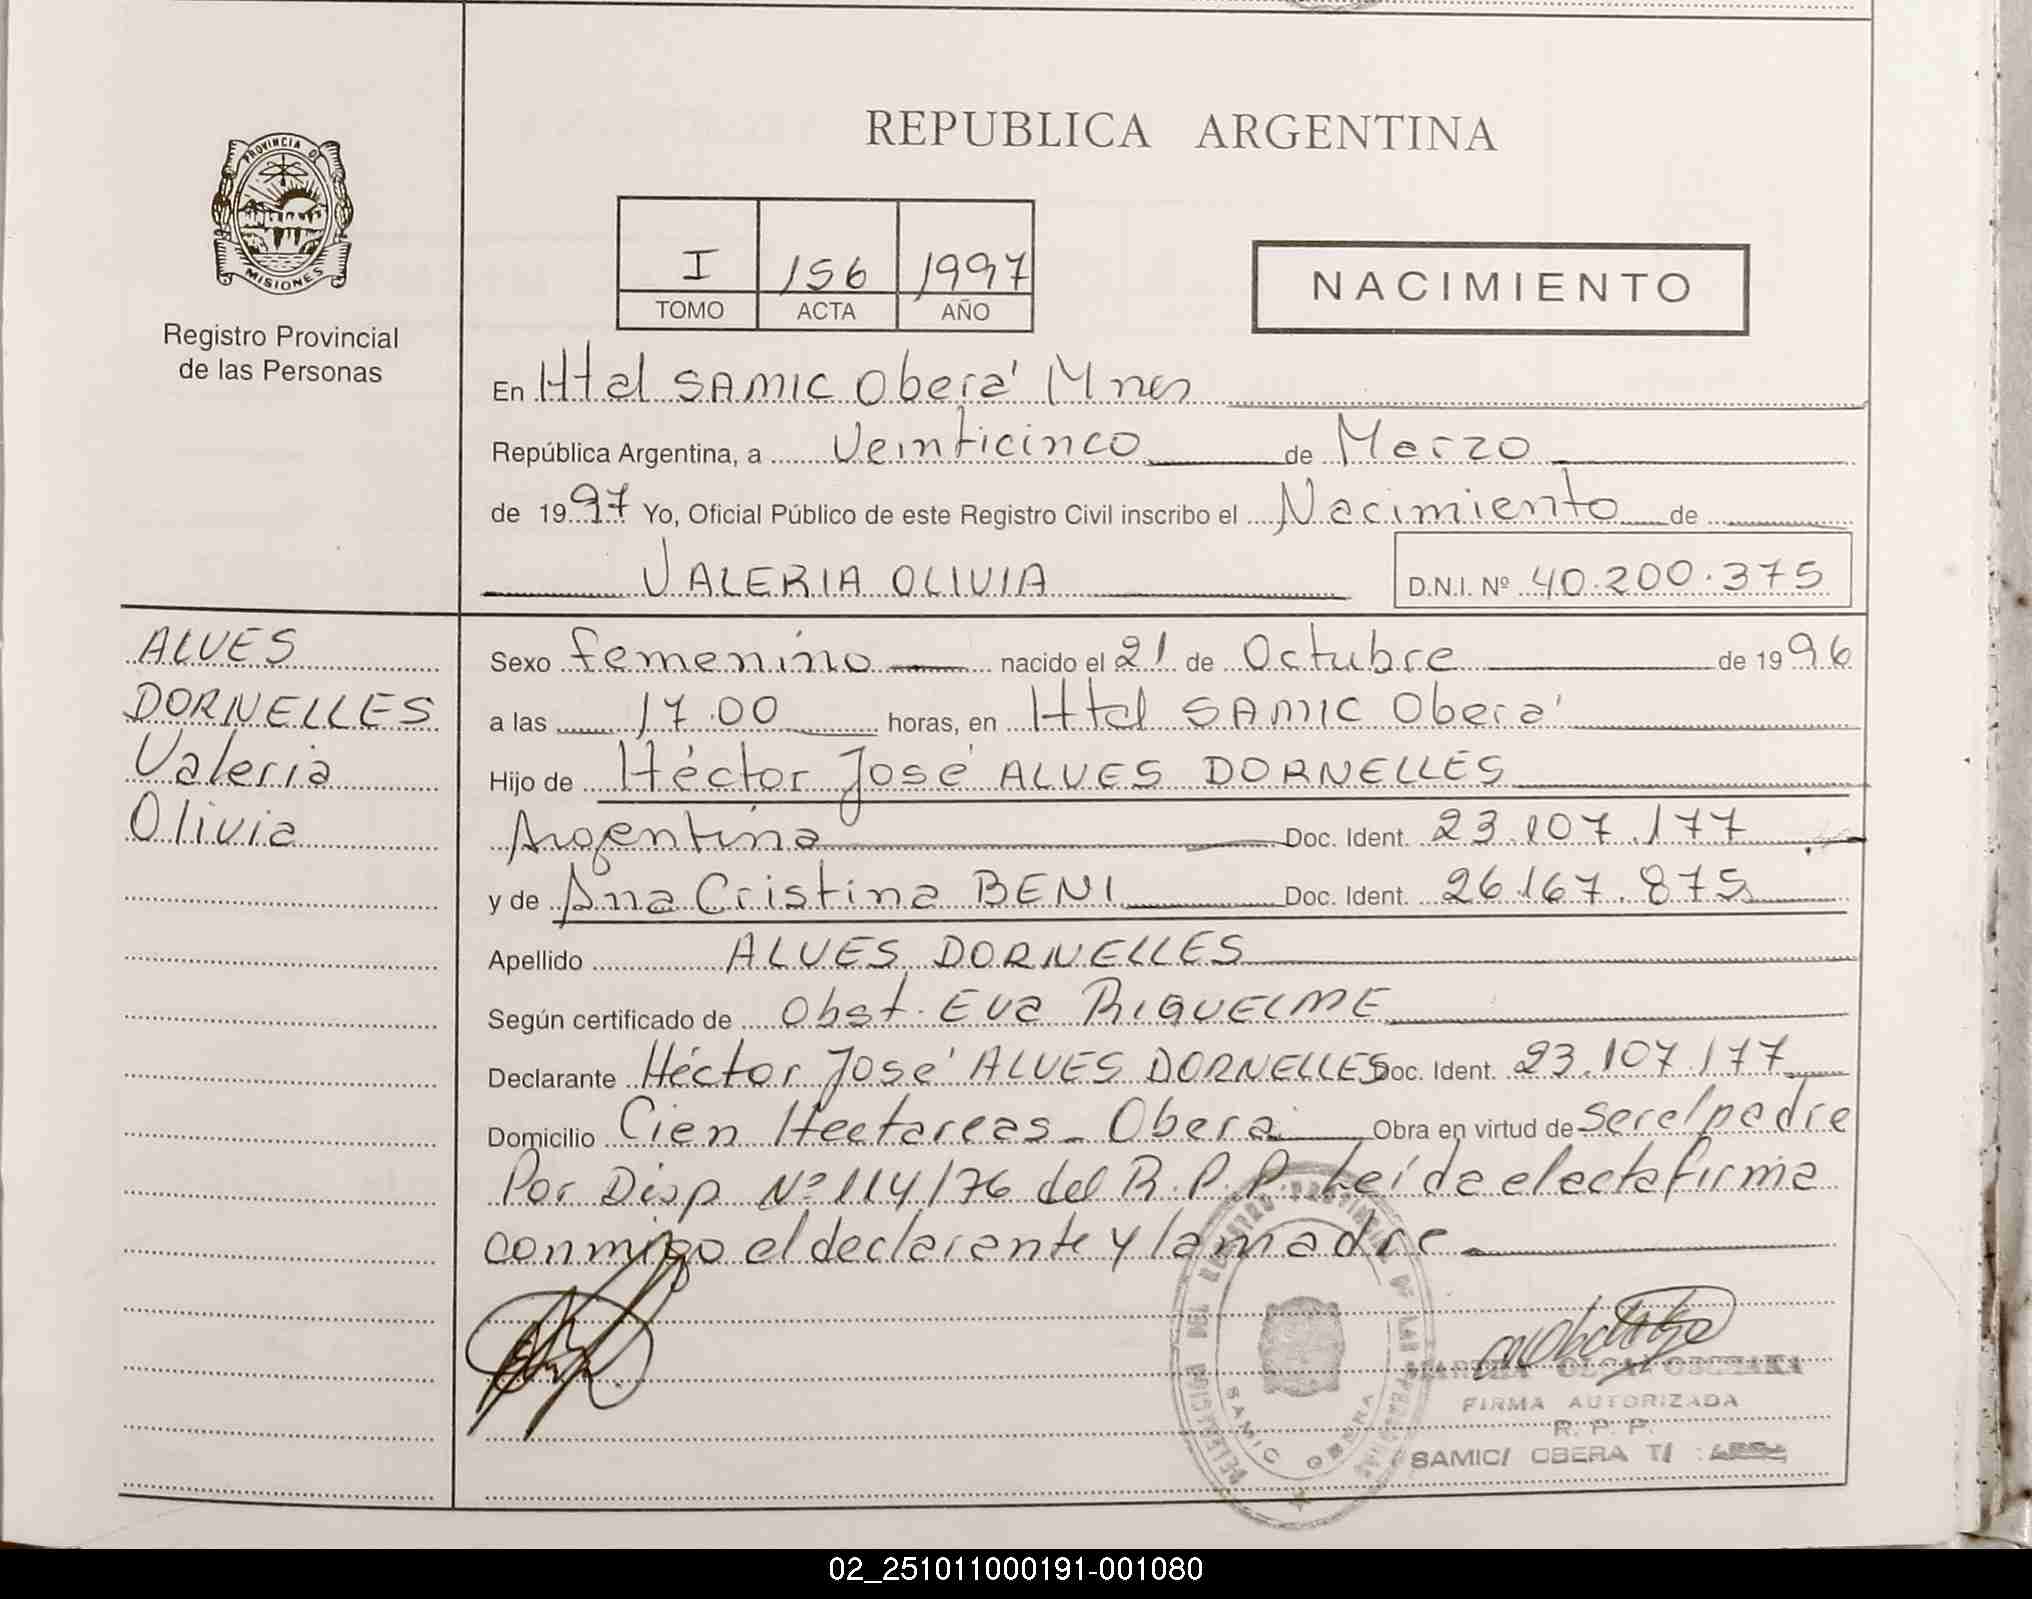 PROVINCIA DE
MISIONES
Registro Provincial
de las Personas
REPUBLICA ARGENTINA
I 156 1997
TOMO ACTA AÑO
NACIMIENTO
En Htal SAMIC Oberá Mnes
República Argentina, a Veinticinco de Marzo
de 1997 Yo, Oficial Público de este Registro Civil inscribo el Nacimiento de
VALERIA OLIVIA D.N.I. Nº 40.200.375
ALVES
DORNELLES
Valeria
Olivia
Sexo femenino nacido el 21 de Octubre de 1996
a las 17.00 horas, en Htal SAMIC Oberá
Hijo de Héctor José ALVES DORNELLES
Argentina Doc. Ident. 23.107.177
y de Ana Cristina BENI Doc. Ident. 26.167.875
Apellido ALVES DORNELLES
Según certificado de Obst. Eva RIQUELME
Declarante Héctor José ALVES DORNELLES Doc. Ident. 23.107.177
Domicilio Cien Hectareas - Obera Obra en virtud de ser el padre
Por Disp Nº 114/76 del R.P.P. Leída el acta firma
conmigo el declarante y la madre.
DELEGACION DEL REGISTRO PROVINCIAL DE LAS PERSONAS
SAMIC OBERA
FIRMA AUTORIZADA
R. P. P.
SAMIC/ OBERA T/
02_251011000191-001080